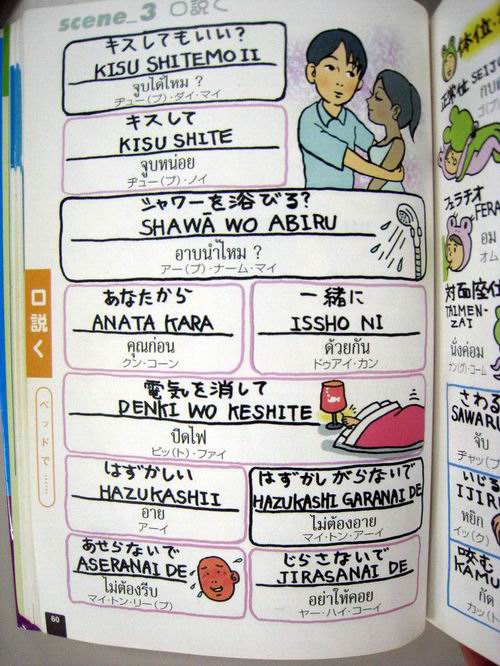 scene_3 口説く
キスしてもいい?
KISU SHITEMO II
จูบได้ไหม ?
ヂュー(プ)・ダイ・マイ
キスして
KISU SHITE
จูบหน่อย
ヂュー(プ)・ノイ
シャワーを浴びる?
SHAWĀ WO ABIRU
อาบน้ำไหม ?
アー(プ)・ナーム・マイ
あなたから
ANATA KARA
คุณก่อน
クン・コーン
一緒に
ISSHO NI
ด้วยกัน
ドゥアイ・カン
電気を消して
DENKI WO KESHITE
ปิดไฟ
ピッ(ト)・ファイ
はずかしい
HAZUKASHII
อาย
アーイ
はずかしがらないで
HAZUKASHI GARANAI DE
ไม่ต้องอาย
マイ・トン・アーイ
あせらないで
ASERANAI DE
ไม่ต้องรีบ
マイ・トン・リー(プ)
じらさないで
JIRASANAI DE
อย่าให้คอย
ヤー・ハイ・コーイ
口説く
ベッドで……
60
体位・
正常位 SEIJO
フェラチオ
FERA
อม
オム
対面座位
TAIMEN-
ZAI
นั่งค่อม
さわる
SAWARU
จับ
ヂャッ(プ)
いじる
IJIRU
หยิก
イッ(ク)
咬む
KAMU
กัด
カッ(ト)